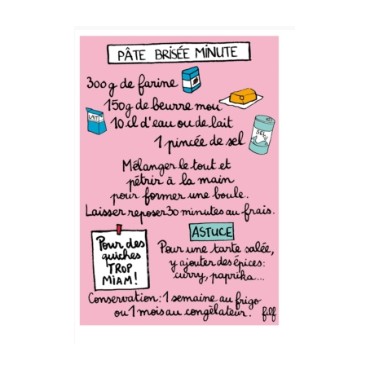 PÂTE BRISÉE MINUTE
300g de farine
150g de beurre mou
10 cl d'eau ou de lait
LAIT
1 pincée de sel
SEL
Mélanger le tout et
pétrir à la main
pour former une boule.
Laisser reposer 30 minutes au frais.
Pour des
quiches
TROP
MIAM!
ASTUCE
Pour une tarte salée,
y ajouter des épices:
curry, paprika....
Conservation: 1 semaine au frigo
ou 1 mois au congélateur.
fiff